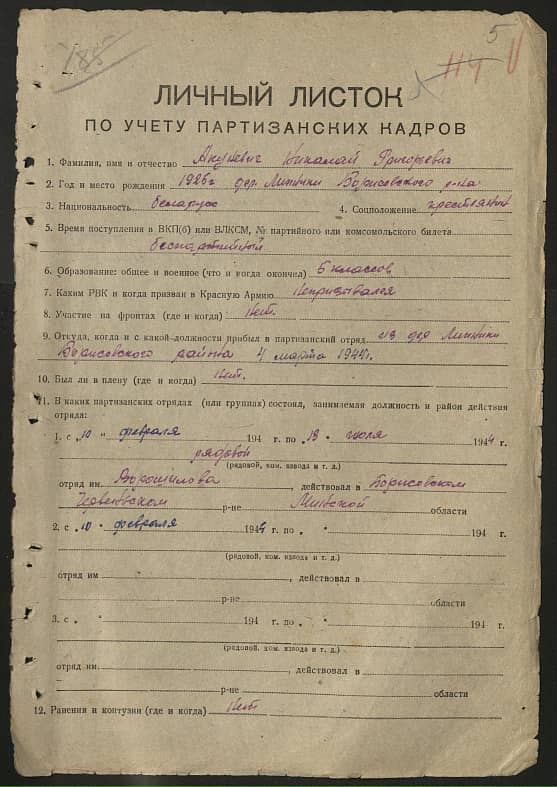 185
5
114
ЛИЧНЫЙ ЛИСТОК
ПО УЧЕТУ ПАРТИЗАНСКИХ КАДРОВ
1. Фамилия, имя и отчество Николай Григорьевич
2. Год и место рождения 1926г. дер. Липники Борисовского р-на
3. Национальность беларус 4. Соцположение крестьянин
5. Время поступления в ВКП(б) или ВЛКСМ, № партийного или комсомольского билета
беспартийный
6. Образование: общее и военное (что и когда окончил) 5 классов
7. Каким РВК и когда призван в Красную Армию Непризывался
8. Участие на фронтах (где и когда) Нет.
9. Откуда, когда и с какой должности прибыл в партизанский отряд из дер Липники
Борисовского района 4 марта 1944г.
10. Был ли в плену (где и когда) Нет.
11. В каких партизанских отрядах (или группах) состоял, занимаемая должность и район действия
отряда:
1. с „10 " февраля 194 г. по „18 " июля 1944 г.
рядовой
(рядовой, ком. взвода и т. д.)
отряд им Ворошилова, действовал в Борисовском
Червенском р-не Минской области
2. с „10 " февраля 1944 г. по „ " 194 г.
(рядовой, ком. взвода и т. д.)
отряд им , действовал в
р-не области
3. с „ " 194 г. по „ " 194 г.
(рядовой, ком. взвода и т. д.)
отряд им. , действовал в
р-не области
12. Ранения и контузии (где и когда) Нет.